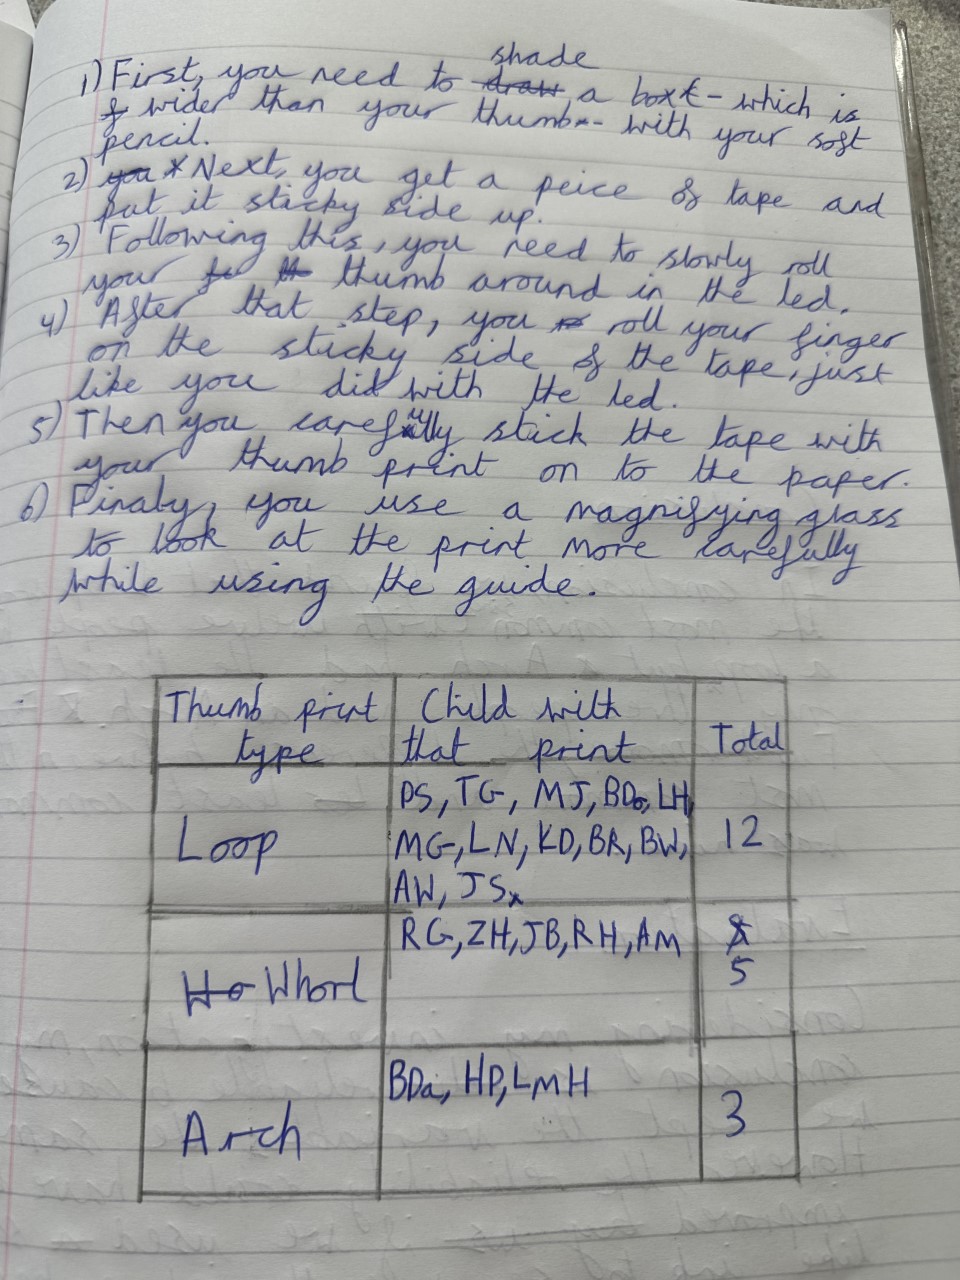 shade
1) First, you need to draw a box - which is
wider than your thumb - with your soft
pencil.
2) you Next, you get a peice of tape and
put it sticky side up.
3) Following this, you need to slowly roll
your thumb around in the led.
4) After that step, you roll your finger
on the sticky side of the tape, just
like you did with the led.
5) Then you carefully stick the tape with
your thumb print on to the paper.
6) Finaly, you use a magnifying glass
to look at the print more carefully
while using the guide.
Thumb print Child with
type that print Total
PS, TG, MJ, BDo, LH,
Loop MG, LN, KD, BR, BW, 12
AW, JS.
RG, ZH, JB, RH, AM
Who Whorl 5
BDa, HP, LMH
Arch 3